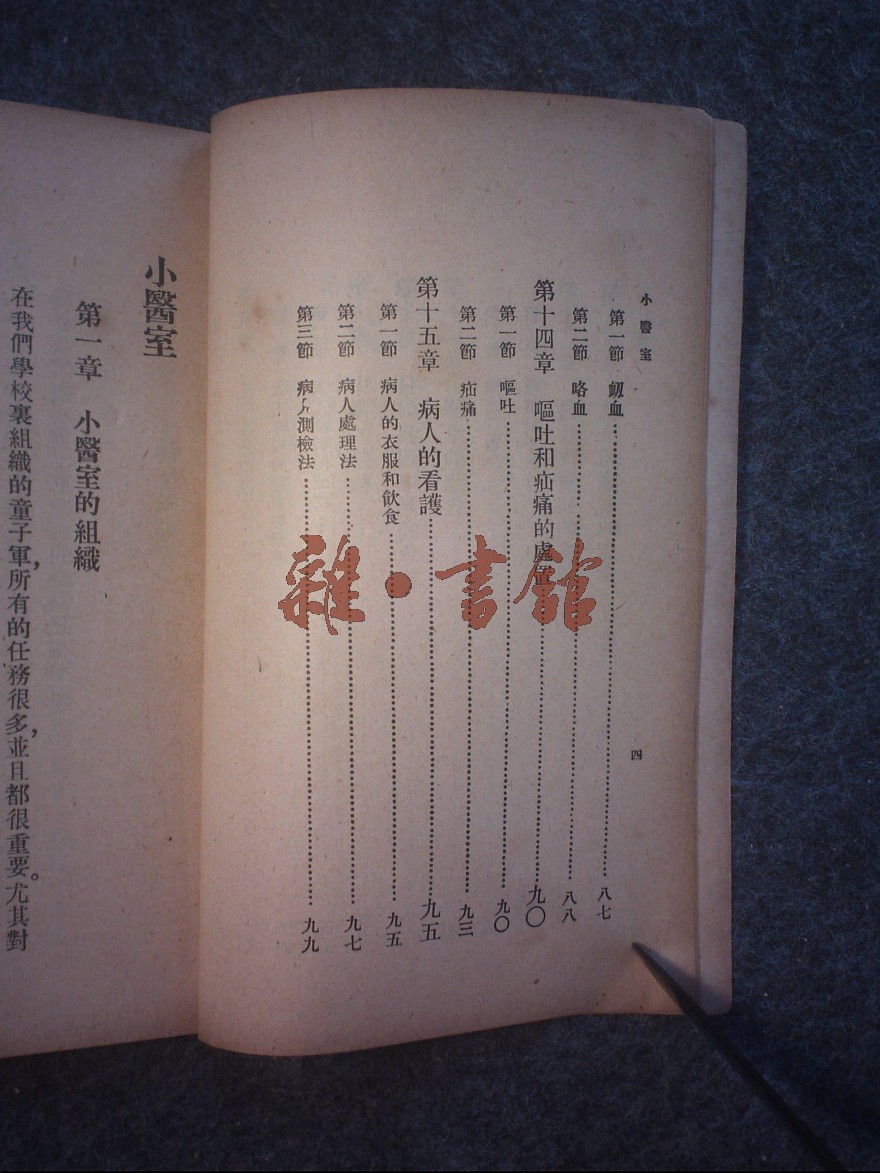 小醫室
四
第一節 衂血……八七
第二節 咯血……八八
第十四章 嘔吐和疝痛的處置……九〇
第一節 嘔吐……九〇
第二節 疝痛……九三
第十五章 病人的看護……九五
第一節 病人的衣服和飲食……九五
第二節 病人處理法……九七
第三節 病人測檢法……九九
雜·書館
小醫室
第一章 小醫室的組織
在我們學校裏組織的童子軍，所有的任務很多，並且都很重要。尤其對